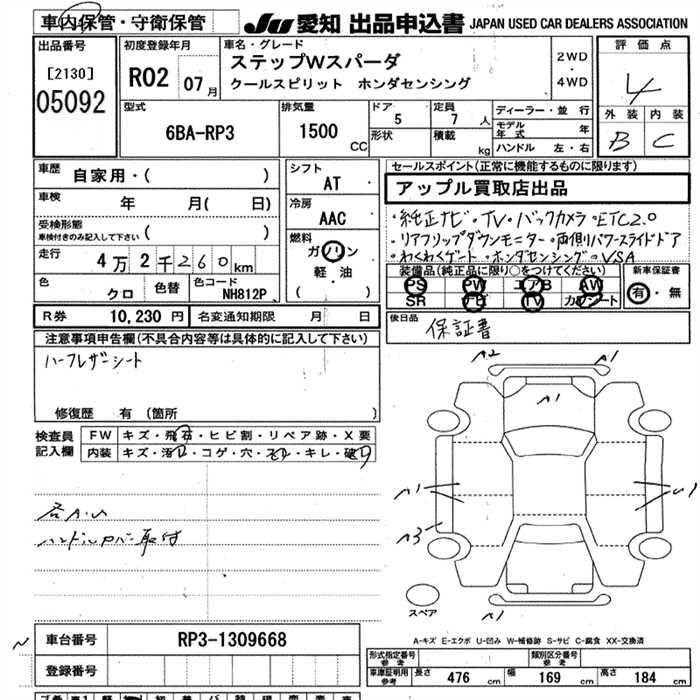 車内保管・守衛保管
JU 愛知 出品申込書 JAPAN USED CAR DEALERS ASSOCIATION
出品番号
[2130]
05092
初度登録年月
R02 07月
車名・グレード
ステップWスパーダ
クールスピリット ホンダセンシング
2WD
・
4WD
評価点
4
外装 内装
B C
型式
6BA-RP3
排気量
1500 CC
ドア
5
形状
定員
7 人
積載
kg
ディーラー・並行
モデル年式 年
ハンドル 左・右
車歴
自家用・( )
車検
年 月( 日)
受検形態
車検付きのみ記入して下さい ( )
走行
4万2千260km
色
クロ
色替
色コード
NH812P
シフト
AT
冷房
AAC
燃料
ガソリン
軽・油
( )
セールスポイント(正常に機能するものに限ります)
アップル買取店出品
・純正ナビ・TV・バックカメラ・ETC2.0
・リアフリップダウンモニター・両側パワースライドドア
・わくわくゲート・ホンダセンシング・VSA
装備品(純正品に限り○をつけてください)
PS PW エアB AW
SR ナビ TV カワシート
新車保証書
有・無
R券 10,230円
名変通知期限 月 日
後日品
保証書
注意事項申告欄(不具合内容等は具体的に記入して下さい)
ハーフレザーシート
修復歴 有 (箇所 )
検査員記入欄
FW キズ・飛石・ヒビ割・リペア跡・X要
内装 キズ・汚れ・コゲ・穴・スレ・キレ・破れ
A2
A1
A1
A1
A3
A1
スペア
A-キズ E-エクボ U-凹み W-補修跡 S-サビ C-腐食 XX-交換済
車台番号 RP3-1309668
登録番号
形式指定番号 参考
類別区分番号 参考
車庫証明用 参考 長さ 476 cm 幅 169 cm 高さ 184 cm